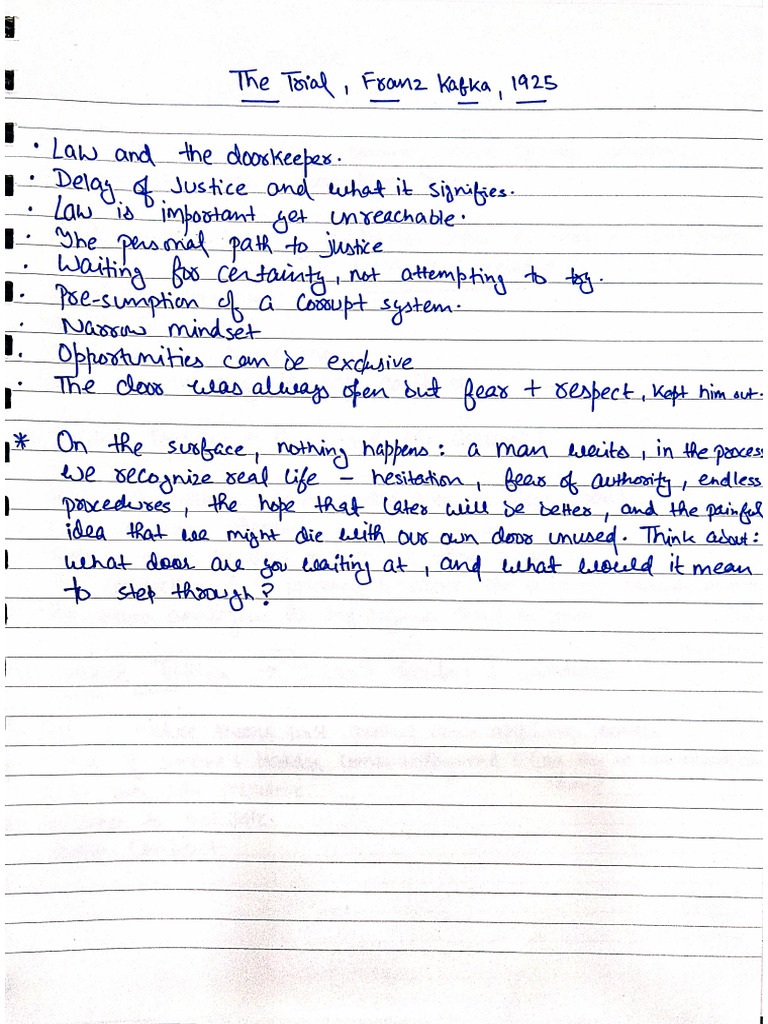 The Trial, Franz Kafka, 1925
· Law and the doorkeeper.
· Delay of Justice and what it signifies.
· Law is important yet unreachable.
· The personal path to justice
· Waiting for certainty, not attempting to try.
· Pre-sumption of a corrupt system.
· Narrow mindset
· Opportunities can be exclusive
· The door was always open but fear + respect, kept him out.
* On the surface, nothing happens: a man waits, in the process
we recognize real life – hesitation, fear of authority, endless
procedures, the hope that later will be better, and the painful
idea that we might die with our own door unused. Think about:
what door are you waiting at, and what would it mean
to step through?